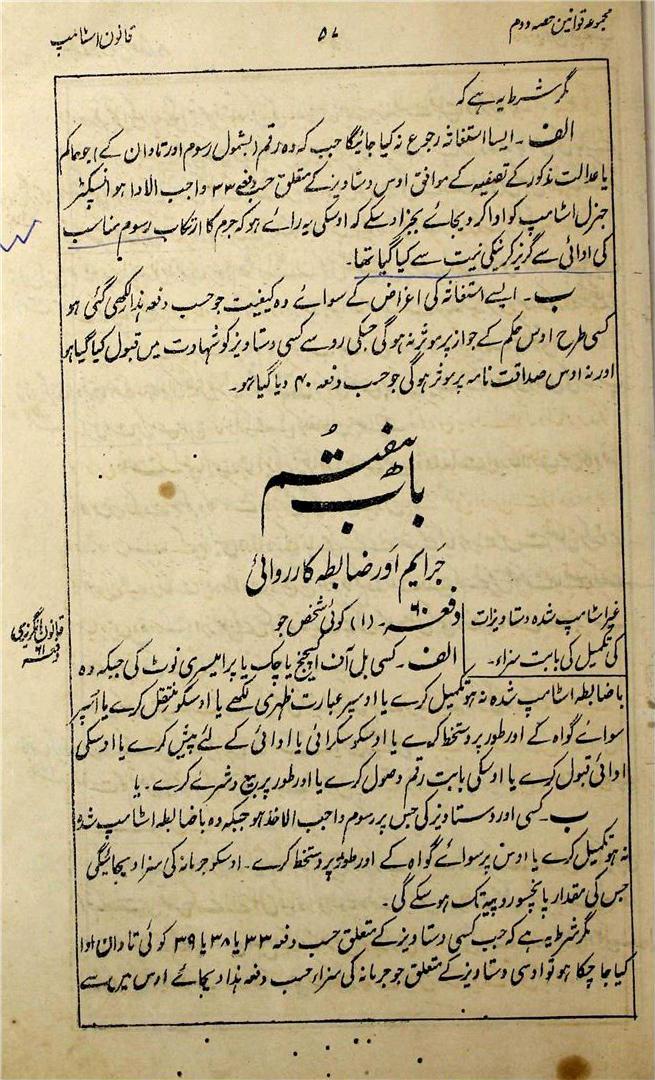 مجموعہ قوانین حصہ دوم
۵۷
قانون اسٹامپ
مگر شرط یہ ہے کہ
الف۔ ایسا استغاثہ رجوع نہ کیا جائیگا جب کہ وہ رقم (بشمول رسوم اور تاوان کے) جو حاکم
یا عدالت مذکور کے تصفیہ کے موافق اوس دستاویز کے متعلق حسب دفعہ ۳۳ واجب الادا ہو انسپکٹر
جنرل اسٹامپ کو ادا کر دیجائے بجز اوسکے کہ اوسکی یہ رائے ہو کہ جرم کا ارتکاب رسوم مناسب
کی ادائی سے گریز کرنیکی نیت سے کیا گیا تھا۔
ب۔ ایسے استغاثہ کی اغراض کے سوائے وہ کیفیت جو حسب دفعہ ہذا رکھی گئی ہو
کسی طرح اوس حکم کے جواز پر موثر نہ ہوگی جسکی رو سے کسی دستاویز کو شہادت میں قبول کیا گیا ہو
اور نہ اوس صداقت نامہ پر موثر ہوگی جو حسب دفعہ ۴۰ دیا گیا ہو۔
باب ہفتم
جرایم اور ضابطہ کارروائی
غیر اسٹامپ شدہ دستاویزات
کی تکمیل کی بابت سزاء۔
قانون انگریزی
دفعہ ۶۱
دفعہ ۶۰۔ (۱) کوئی شخص جو
الف۔ کسی بل آف اکسچینج یا چک یا پرامیسری نوٹ کی جبکہ وہ
باضابطہ اسٹامپ شدہ نہ ہو تکمیل کرے یا اوسپر عبارت ظہری لکھے یا اوسکو منتقل کرے یا اسپر
سوائے گواہ کے اور طور پر دستخط کرے یا اوسکو سکرائی یا ادائی کے لئے پیش کرے یا اوسکی
ادائی قبول کرے یا اوسکی بابت رقم وصول کرے یا اور طور پر بیع و شرے کرے۔ یا
ب۔ کسی اور دستاویز کی جس پر رسوم واجب الاخذ ہو جبکہ وہ باضابطہ اسٹامپ شدہ
نہ ہو تکمیل کرے یا اوس پر سوائے گواہ کے اور طور پر دستخط کرے۔ اوسکو جرمانہ کی سزا دیجائیگی
جس کی مقدار پانچسو روپیہ تک ہو سکے گی۔
مگر شرط یہ ہے کہ جب کسی دستاویز کے متعلق حسب دفعہ ۳۳ یا ۳۸ یا ۳۹ کوئی تاوان ادا
کیا جا چکا ہو تو اوسی دستاویز کے متعلق جو جرمانہ کی سزاء حسب دفعہ ہذا دیجائے اوس میں سے